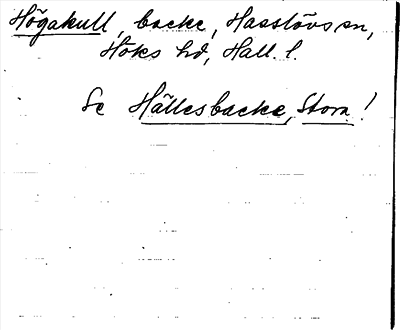 Högakull, backe, Hasslövs sn,
Höks hd, Hall. l.
Se Hällesbacke, Stora!